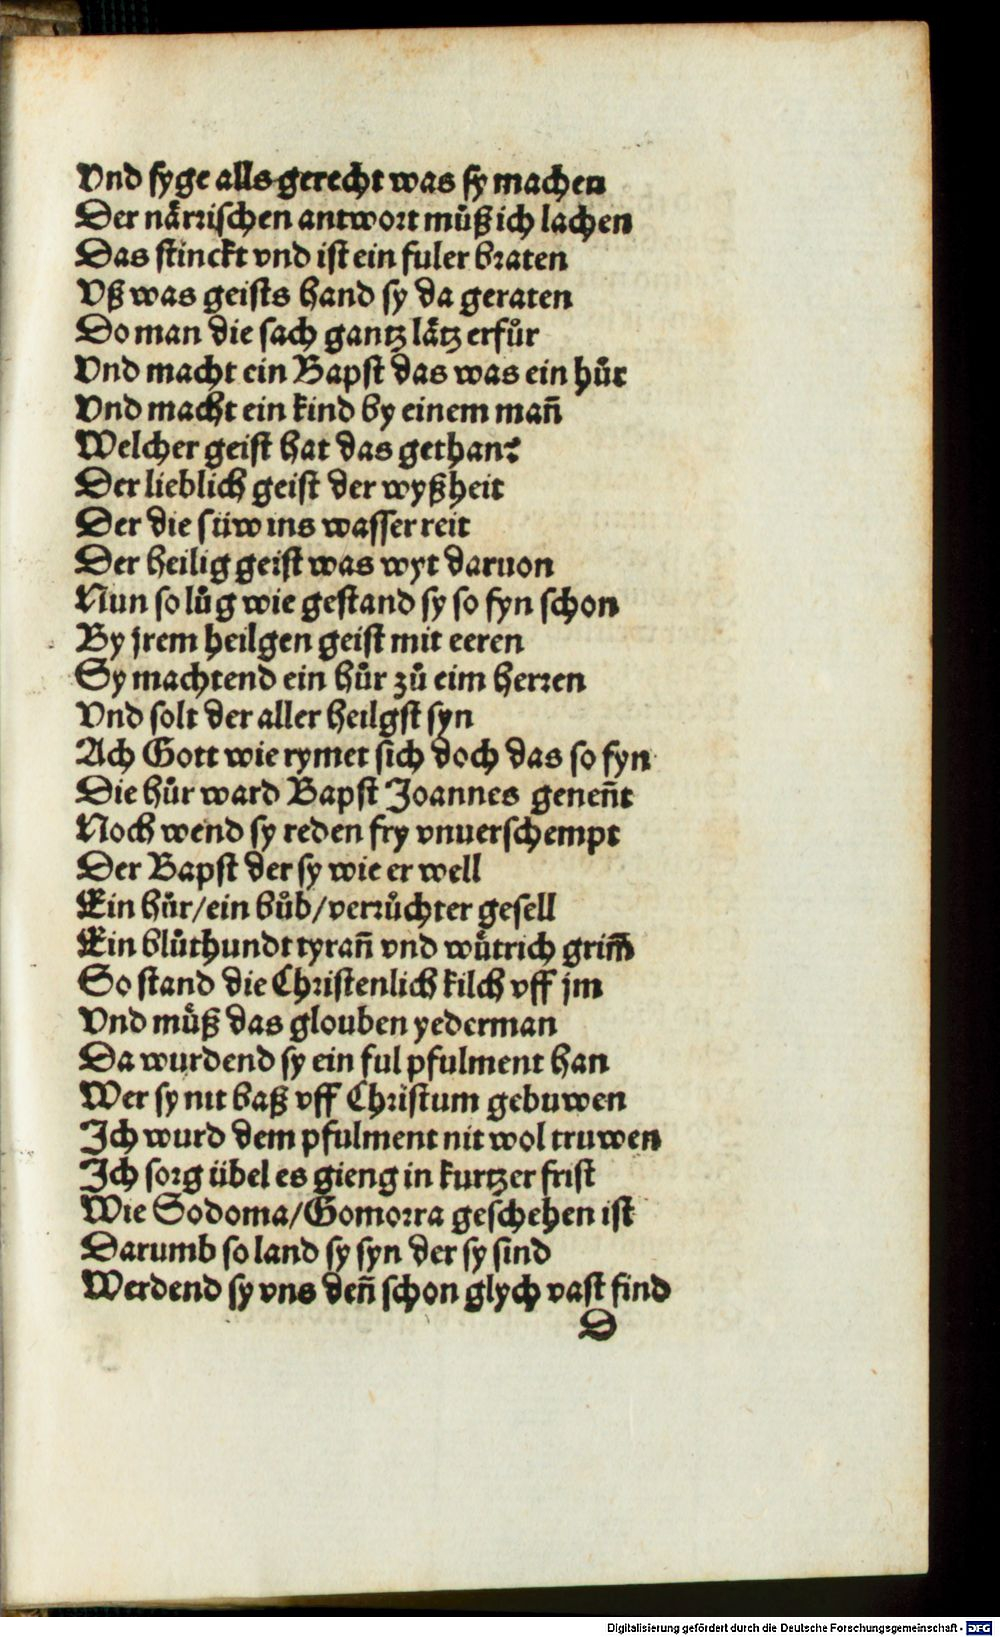 Vnd syge alls gerecht was sy machen
Der närrischen antwort muͦß ich lachen
Das stinckt vnd ist ein fuler braten
Vß was geists hand sy da geraten
Do man die sach gantz lätz erfuͦr
Vnd macht ein Bapst das was ein huͦr
Vnd macht ein kind by einem man̄
Welcher geist hat das gethan?
Der lieblich geist der wyßheit
Der die süw ins wasser reit
Der heilig geist was wyt daruon
Nun so luͦg wie gestand sy so fyn schon
By jrem heilgen geist mit eeren
Sy machtend ein huͦr zuͦ eim herren
Vnd solt der aller heilgst syn
Ach Gott wie rymet sich doch das so fyn
Die huͦr ward Bapst Joannes genen̄t
Noch wend sy reden fry vnuerschempt
Der Bapst der sy wie er well
Ein huͦr/ein buͦb/verruͦchter gesell
Ein bluͦthundt tyran̄ vnd wuͤtrich grim̄
So stand die Christenlich kilch vff jm
Vnd muͤß das glouben yederman
Da wurdend sy ein ful pfulment han
Wer sy nit baß vff Christum gebuwen
Ich wurd dem pfulment nit wol truwen
Ich sorg übel es gieng in kurtzer frist
Wie Sodoma/Gomorra geschehen ist
Darumb so land sy syn der sy sind
Werdend sy vns den̄ schon glych vast find
D
Digitalisierung gefördert durch die Deutsche Forschungsgemeinschaft - DFG